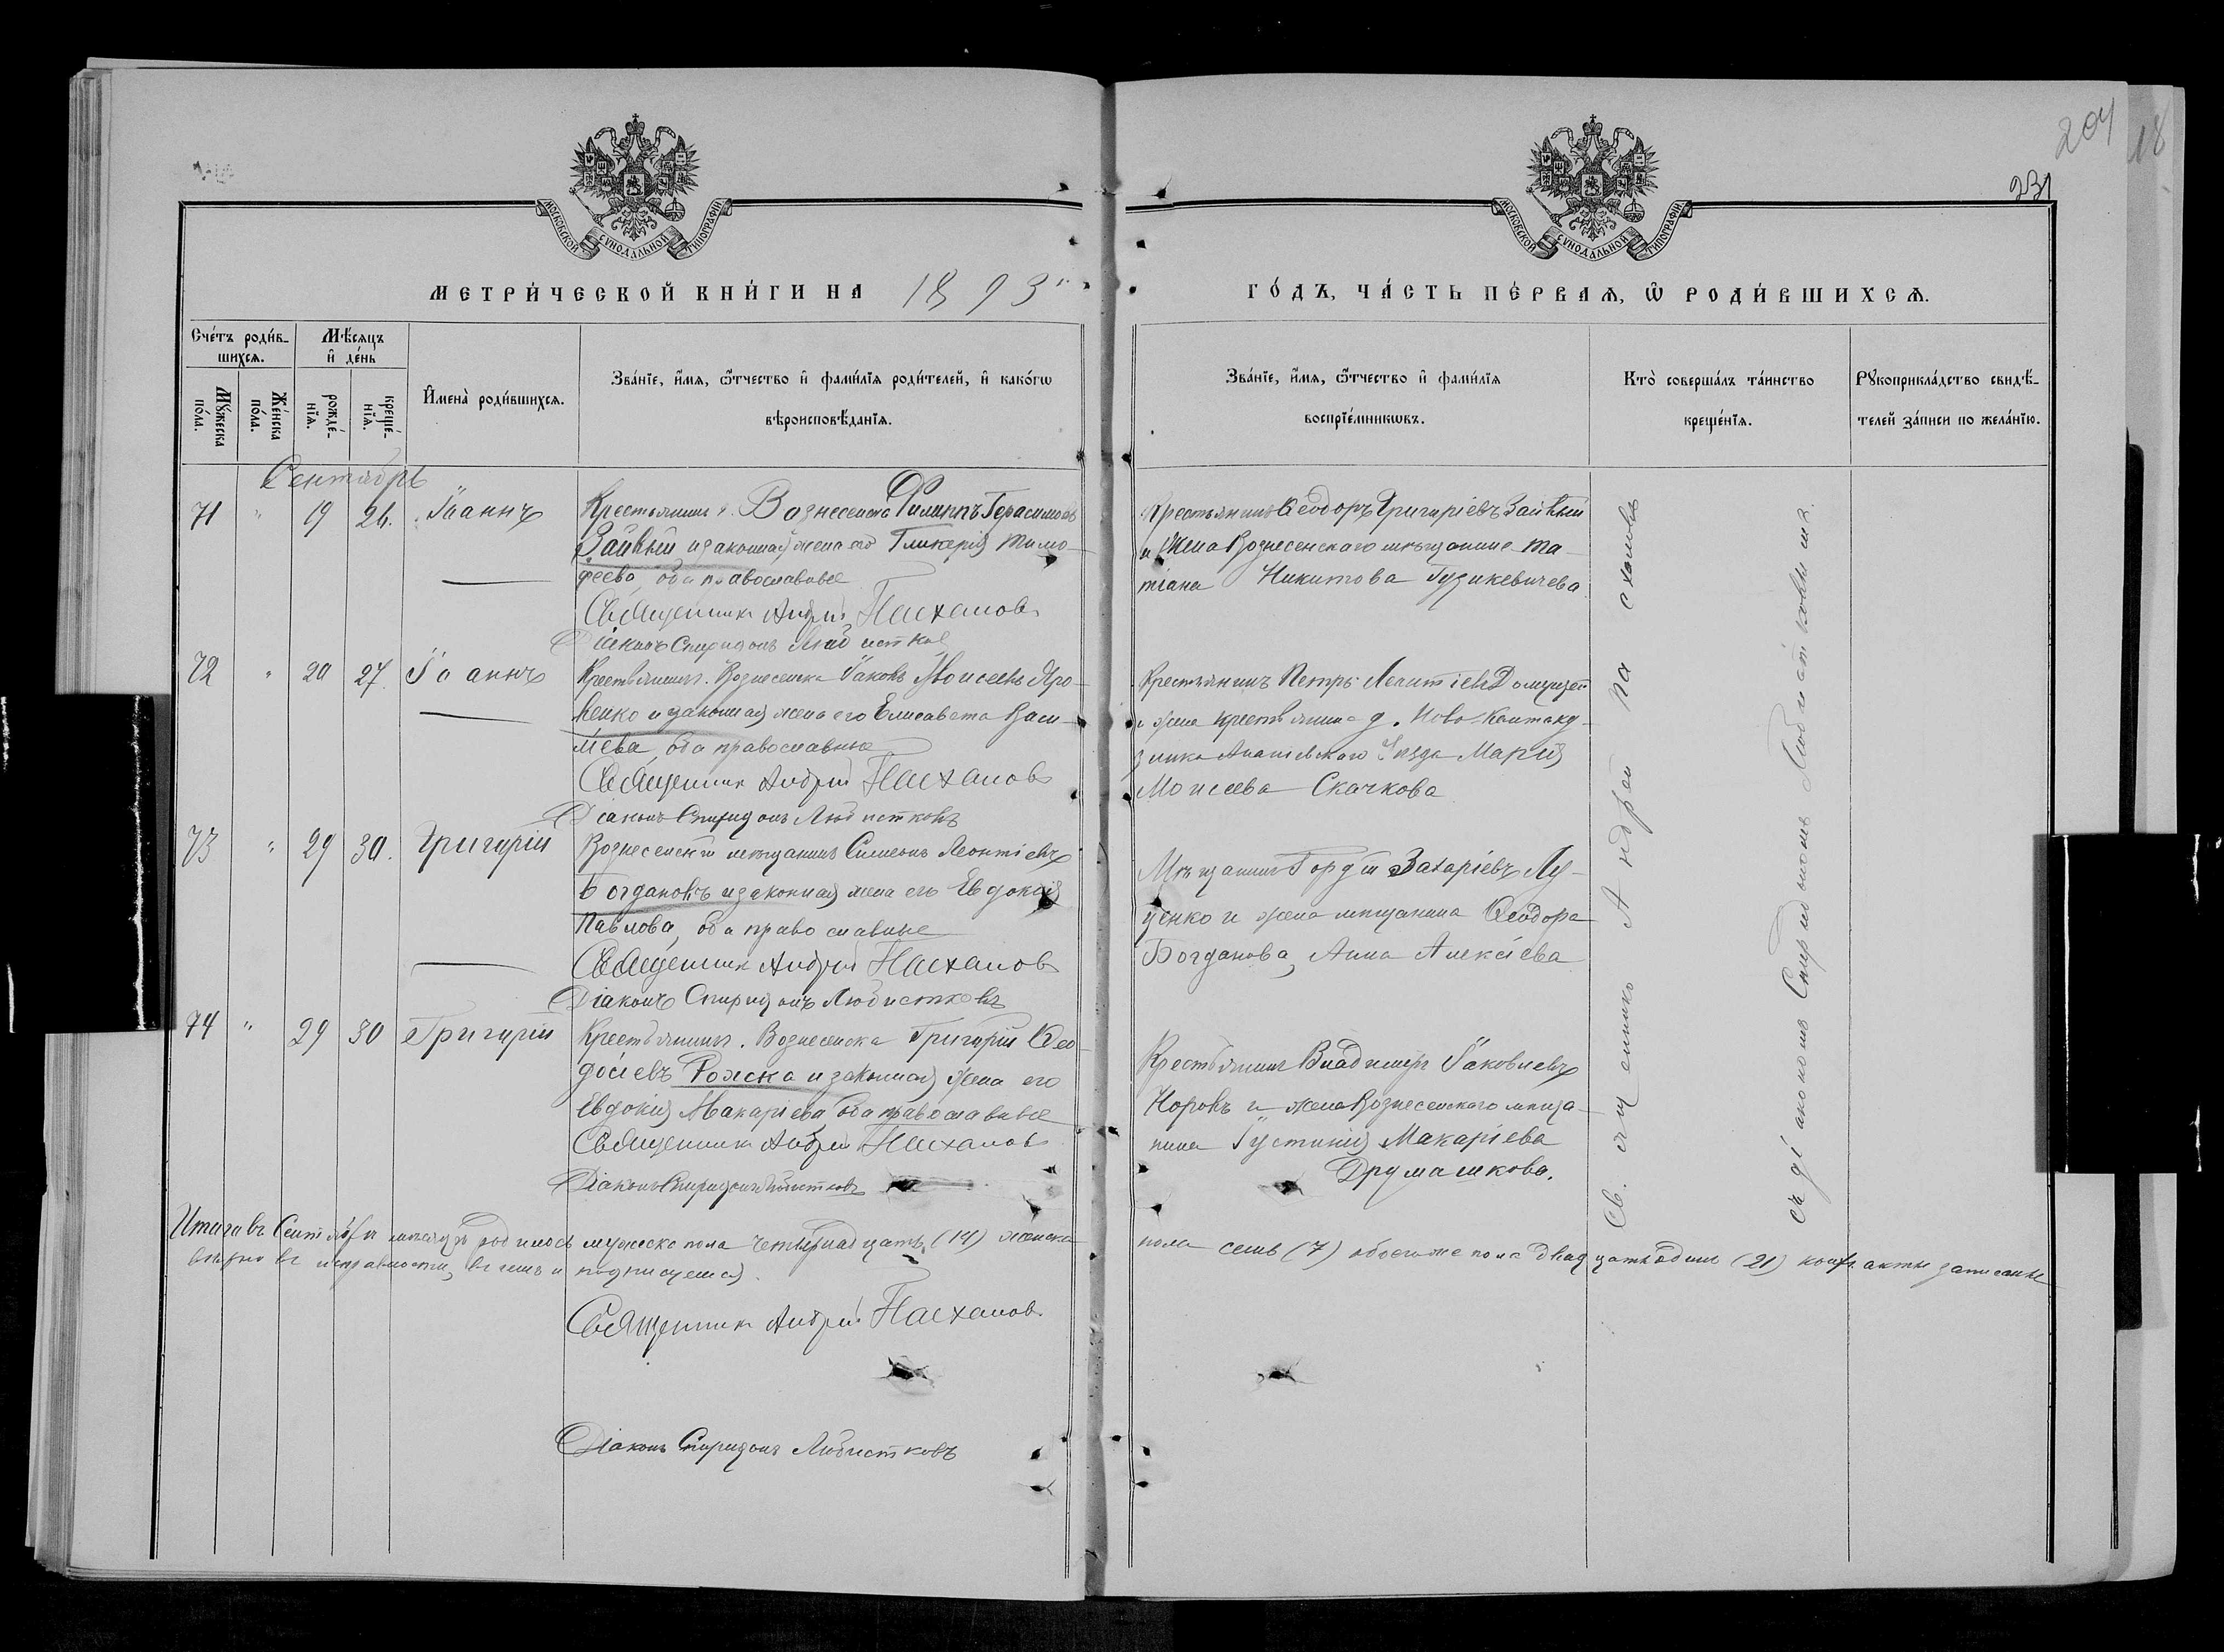 204
18
231
МОСКОВСКОЙ СѴНОДАЛЬНОЙ ТИПОГРАФІИ
МОСКОВСКОЙ СѴНОДАЛЬНОЙ ТИПОГРАФІИ
МЕТРИ́ЧЕСКОЙ КНИ́ГИ НА 1893
ГО́ДЪ, ЧА́СТЬ ПЕ́РВАѦ, Ѡ҆ РОДИ́ВШИХСѦ.
Сче́тъ роди́в-
шихсѧ.
Мѣ́сѧцъ
и҆ де́нь
Мꙋ́жеска
по́ла.
Же́нска
по́ла.
рожде́-
нїѧ.
креще́-
нїѧ.
И҆мена̀ роди́вшихсѧ.
Зва́нїе, и҆́мѧ, ѻ҆́тчество и҆ фами́лїѧ роди́телей, и҆ како́гѡ
вѣроисповѣ́данїѧ.
Зва́нїе, и҆́мѧ, ѻ҆́тчество и҆ фами́лїѧ
воспрїе́мникѡвъ.
Кто̀ соверша́лъ та́инство
креще́нїѧ.
Рꙋкоприкла́дство свидѣ́-
телей за́писи по жела́нїю.
Сентябрь
71 " 19 26. Іоаннъ
Крестьянинъ г. Вознесенска Филиппъ Герасимовъ
Заичный и законная жена его Гликерія Тимо-
феева, оба православные
Священникъ Андрей Пасхаловъ
Діаконъ Спиридонъ Любистковъ
Крестьянинъ Ѳеодоръ Григоріевъ
и жена Вознесенскаго мѣщанина Та-
тіана Никитова Гузикевичева
72 " 20 27. Іоаннъ
Крестьянинъ г. Вознесенска Іаковъ Моисеевъ Яро-
венко и законная жена его Елисавета Васи-
ліева, оба православные
Священникъ Андрей Пасхаловъ
Діаконъ Спиридонъ Любистковъ
Крестьянинъ Петръ
и жена крестьянина д. Ново-Кантаку-
зинка Ананьевскаго уѣзда Марія
Моисеева Скачкова
73 " 29 30. Григорій
Вознесенскій мѣщанинъ Симеонъ Леонтіевъ
Богдановъ и законная жена его Евдокія
Павлова, оба православные
Священникъ Андрей Пасхаловъ
Діаконъ Спиридонъ Любистковъ
Мѣщанинъ Гордій Захаріевъ Лу-
ценко и жена мѣщанина Ѳеодора
Богданова, Анна Алексіева
74 " 29 30 Григорій
Крестьянинъ г. Вознесенска Григорій Ѳео-
досіевъ Рожска и законная жена его
Евдокія Макаріева оба православные
Священникъ Андрей Пасхаловъ
Діаконъ Спиридонъ Любистковъ
Крестьянинъ Владимиръ Іаковлевъ
Норовъ и жена Вознесенскаго мѣща-
нина Іустинія Макаріева
Друмашкова.
Священникъ Андрей Пасхаловъ
съ діакономъ Спиридономъ Любистковымъ.
Итого въ Сентябрѣ мѣсяцѣ родилось мужеска пола четырнадцать (14) женска пола семь (7) обоего же пола двадцать одинъ (21) акты записаны
вѣрно въ исправности, въ чемъ и подписуемся.
Священникъ Андрей Пасхаловъ
Діаконъ Спиридонъ Любистковъ